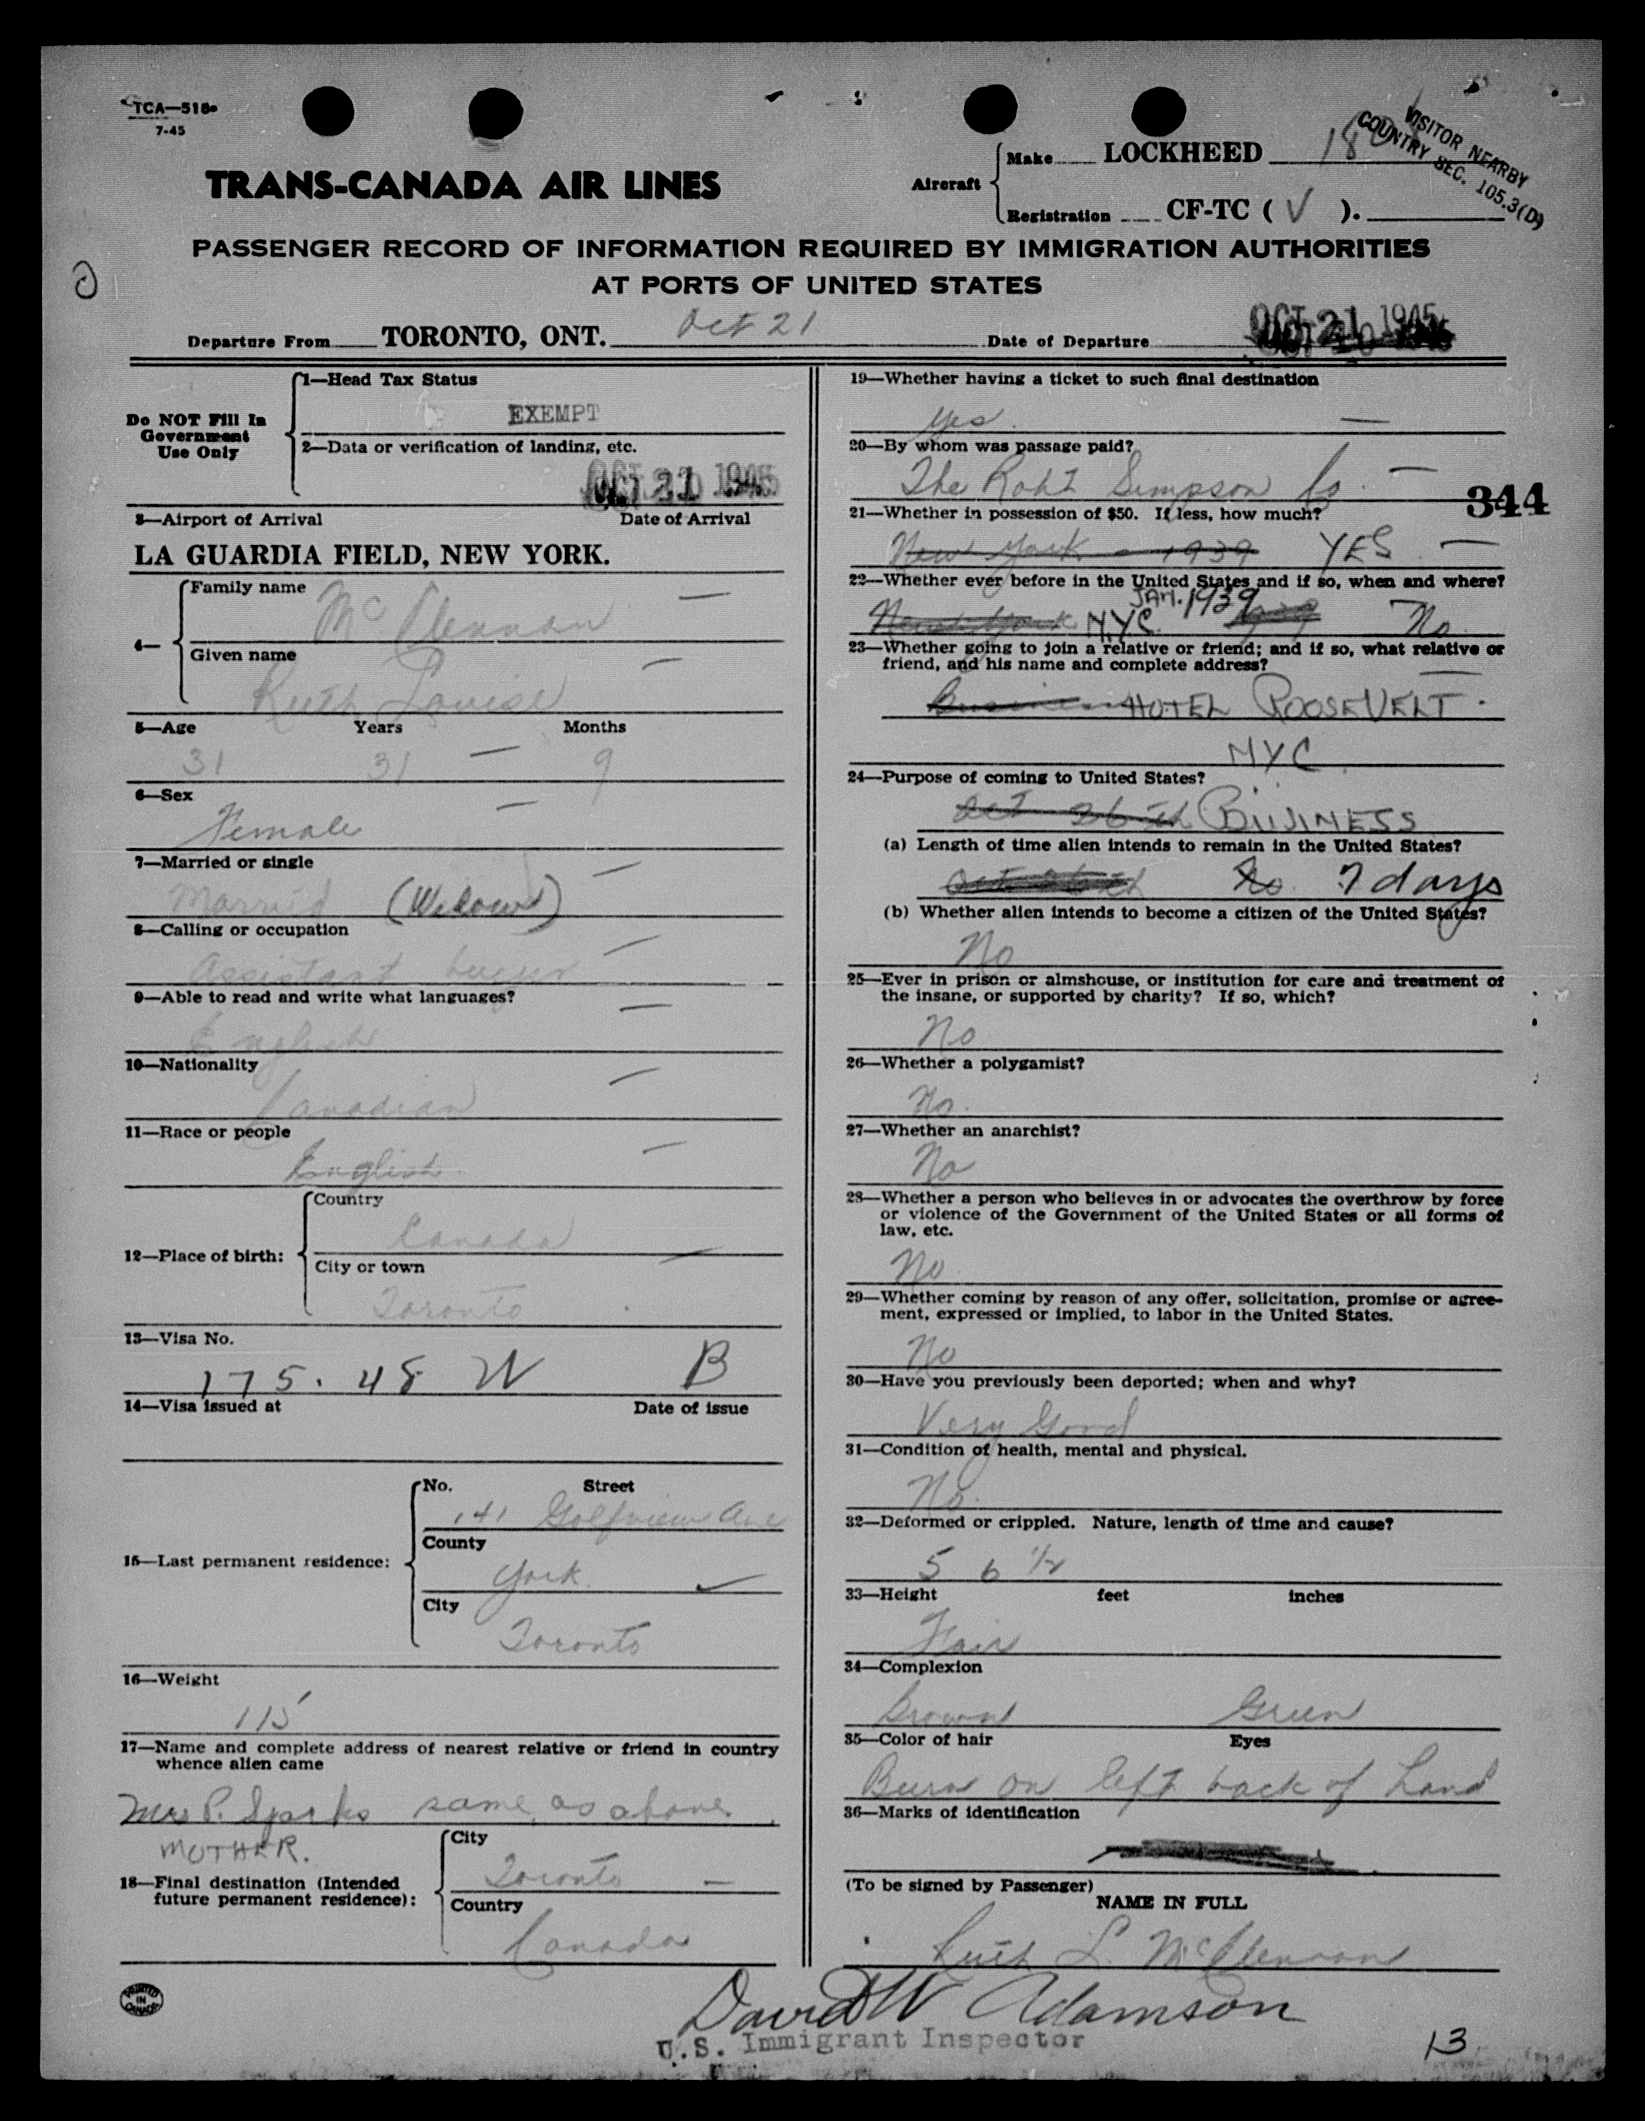 TCA—518
7-45
TRANS-CANADA AIR LINES
Aircraft
Make LOCKHEED 18
Registration CF-TC ( V ).
VISITOR NEARBY
COUNTRY SEC. 105.3(D)
PASSENGER RECORD OF INFORMATION REQUIRED BY IMMIGRATION AUTHORITIES
AT PORTS OF UNITED STATES
Departure From TORONTO, ONT. Oct 21 Date of Departure OCT 21 1945
Do NOT Fill In
Government
Use Only
1—Head Tax Status
EXEMPT
2—Data or verification of landing, etc.
OCT 21 1945
3—Airport of Arrival Date of Arrival
LA GUARDIA FIELD, NEW YORK.
4—
Family name
McClennan —
Given name
Ruth Louise —
5—Age Years Months
31 31 — 9
6—Sex
Female —
7—Married or single
Married (Widow) —
8—Calling or occupation
Assistant buyer —
9—Able to read and write what languages?
English —
10—Nationality
Canadian —
11—Race or people
English —
12—Place of birth:
Country
Canada
City or town
Toronto
13—Visa No.
175.48 W B
14—Visa issued at Date of issue
15—Last permanent residence:
No. Street
141 Golfview Ave
County
York
City
Toronto
16—Weight
115
17—Name and complete address of nearest relative or friend in country
whence alien came
Mrs P. Sparks same as above
MOTHER.
18—Final destination (Intended
future permanent residence):
City
Toronto —
Country
Canada
PRINTED
IN
CANADA
19—Whether having a ticket to such final destination
Yes —
20—By whom was passage paid?
The Robt Simpson Co. —
344
21—Whether in possession of $50. If less, how much?
New York - 1939 YES —
22—Whether ever before in the United States and if so, when and where?
JAN. 1939
New York NYC No
23—Whether going to join a relative or friend; and if so, what relative or
friend, and his name and complete address?
Business HOTEL ROOSEVELT
NYC
24—Purpose of coming to United States?
Oct 26th BUSINESS
(a) Length of time alien intends to remain in the United States?
Oct 26th No 7 days
(b) Whether alien intends to become a citizen of the United States?
No
25—Ever in prison or almshouse, or institution for care and treatment of
the insane, or supported by charity? If so, which?
No
26—Whether a polygamist?
No.
27—Whether an anarchist?
No
28—Whether a person who believes in or advocates the overthrow by force
or violence of the Government of the United States or all forms of
law, etc.
No
29—Whether coming by reason of any offer, solicitation, promise or agree-
ment, expressed or implied, to labor in the United States.
No
30—Have you previously been deported; when and why?
Very Good
31—Condition of health, mental and physical.
No.
32—Deformed or crippled. Nature, length of time and cause?
5 6 1/2
33—Height feet inches
Fair
34—Complexion
Brown Green
35—Color of hair Eyes
Burn on left back of hand
36—Marks of identification
(To be signed by Passenger)
NAME IN FULL
Ruth L. McClennan
David W Adamson
U.S. Immigrant Inspector
13